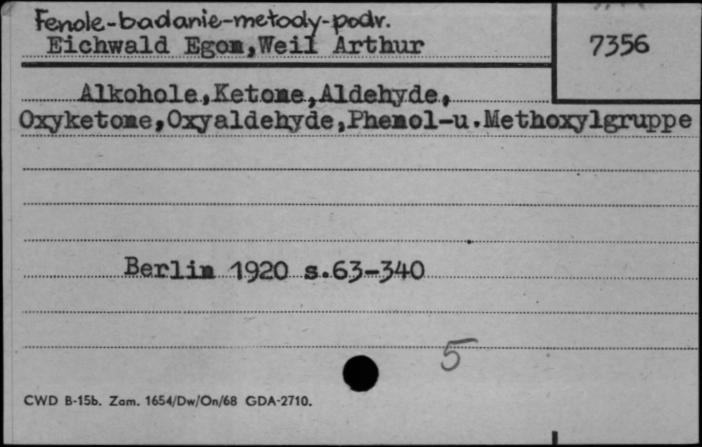 Fenole-badanie-metody-podr.
Eichwald Egon,Weil Arthur
7356
Alkohole,Ketone,Aldehyde,
Oxyketone,Oxyaldehyde,Phenol-u.Methoxylgruppe
Berlin 1920 s.63-340
5
CWD B-15b. Zam. 1654/Dw/On/68 GDA-2710.